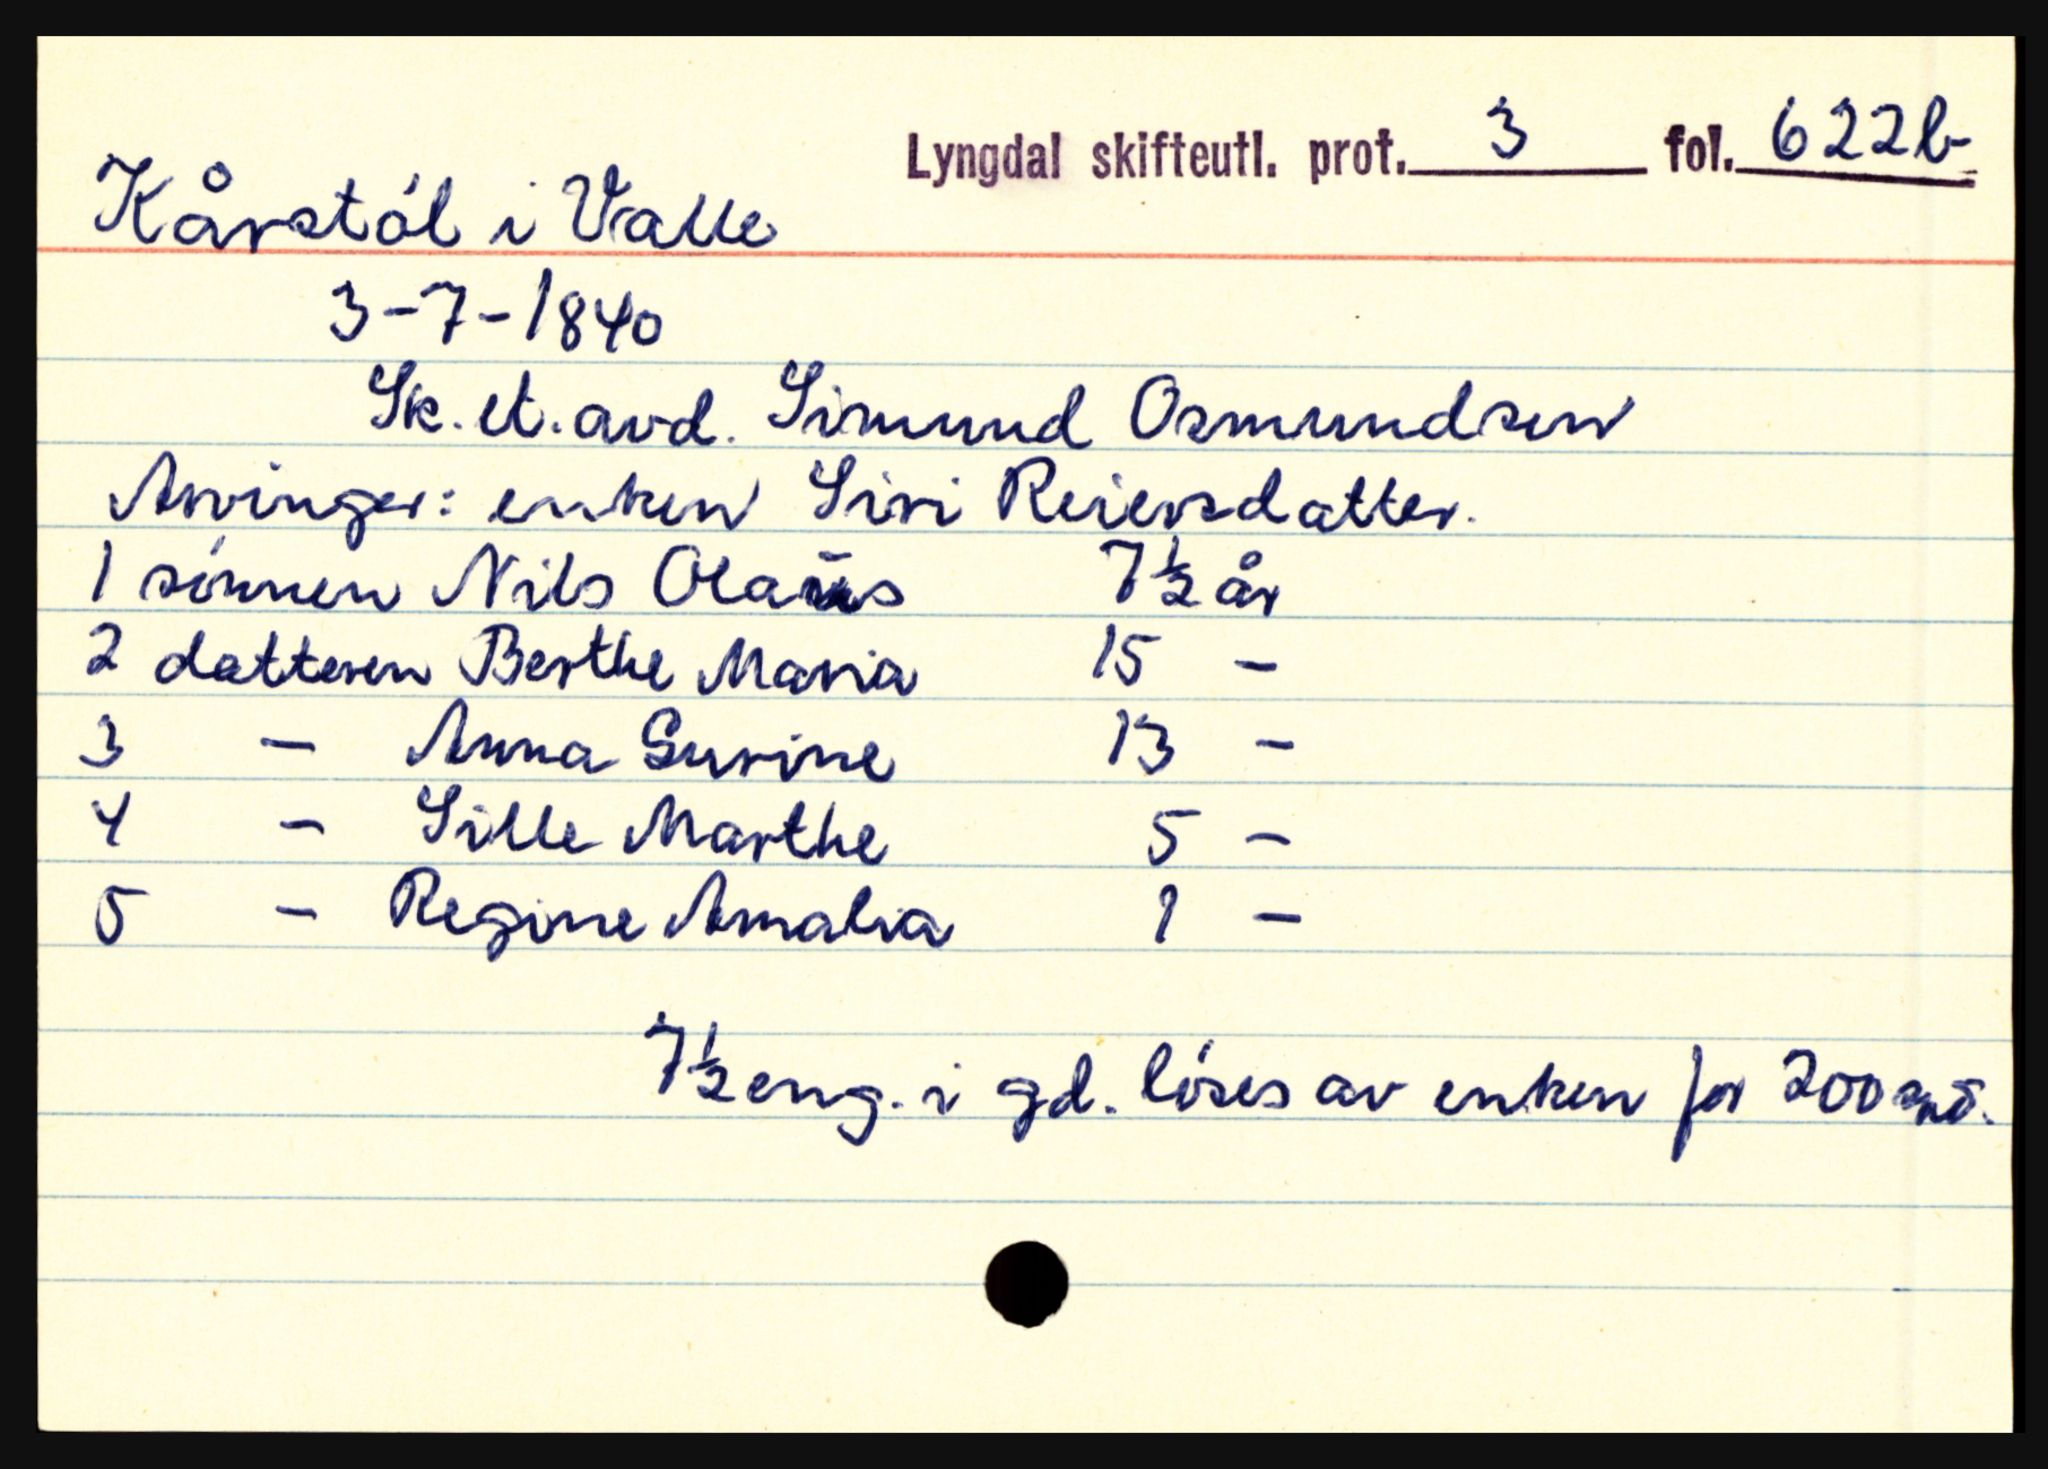 Lyngdal skifteutl. prot. 3 fol. 622b
Kårstól i Valle
3-7-1840
Sk. et. avd. Simund Osmundsen
Arvinger: enken Siri Reiersdatter.
1 sónnen Nils Olaūs 7½ år
2 datteren Berthe Maria 15 -
3 - Anna Gurine 13 -
4 - Sille Marthe 5 -
5 - Regine Amalia 1 -
7½ eng. i gd. lóses av enken for 200